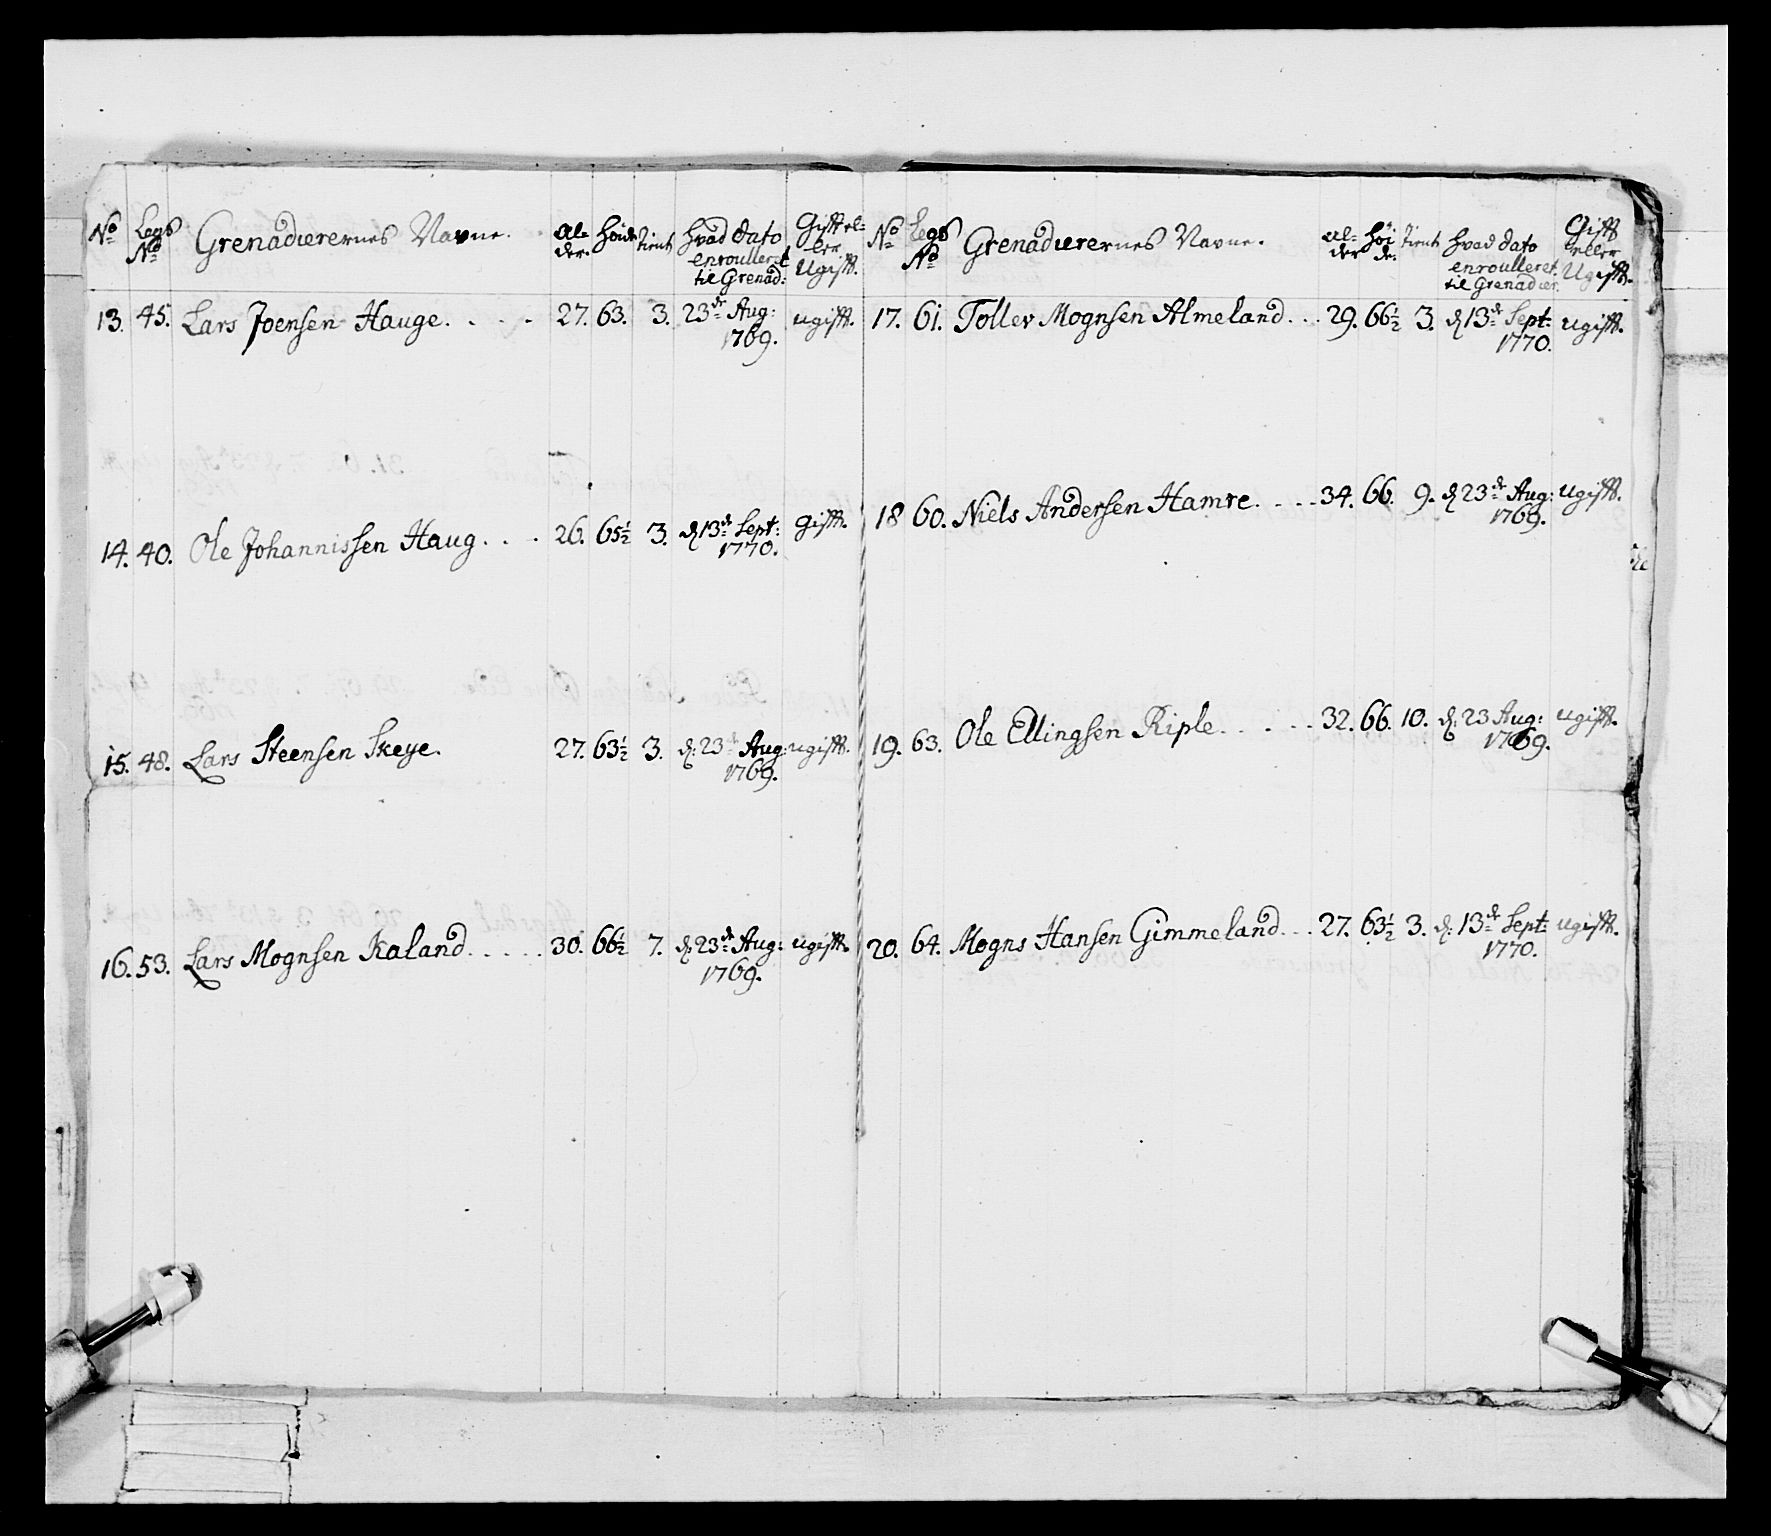 No Legs No Grenadierernes Navne. Al-der. Høide tient hvad dato enroulleret til Grenad: Gifft el-ler Ugifft.
13. 45. Lars Joensen Hauge. . . . 27. 63. 3. 23de Aug: 1769. ugifft.
14. 40. Ole Johannissen Haug. . . 26. 65½ 3. d. 13de Sept: 1770. Gifft.
15. 48. Lars Steensen Skeye. 27. 63½ 3. d. 23de Aug: 1769. ugifft.
16. 53. Lars Mognsen Kaland. . . . . 30. 66½ 7. d. 23de Aug: 1769. ugifft.
No Legs No Grenadierernes Navne. Al-der Høi-de. tient hvad dato enroulleret til Grenadier. Gifft eller Ugifft.
17. 61. Tollev Mognsen Almeland. . . 29. 66½ 3. d. 13de Sept: 1770. ugifft.
18 60. Niels Andersen Hamre. . . . 34. 66. 9. d. 23de Aug: 1769. Ugifft.
19. 63. Ole Ellingsen Riple. . . . . 32. 66. 10. d. 23 Aug: 1769. ugifft.
20. 64. Mogns Hansen Gimmeland. . . 27. 63½ 3. d. 13de Sept: 1770. ugifft.